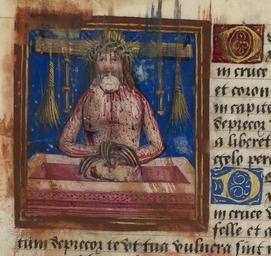 O
in cruce
et coron
in capite
deprecor
a liberet
gelo per
D
in cruce
felle et a
tum deprecor te vt tua vulnera sint